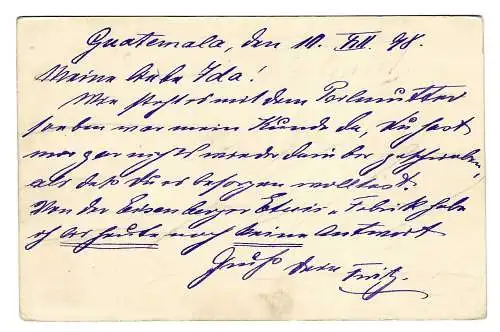 Guatemala, den 10. VII. 98.
Meine liebe Ida!
Wie steht es mit dem Perlmutter
soeben war mein Kunde da, Du hast
mir gar nichts wieder darüber geschrieben,
als daß Du es besorgen wolltest.
Von der Eisenberger Etuis-Fabrik habe
ich bis heute noch keine Antwort
Gruß Dein Fritz.